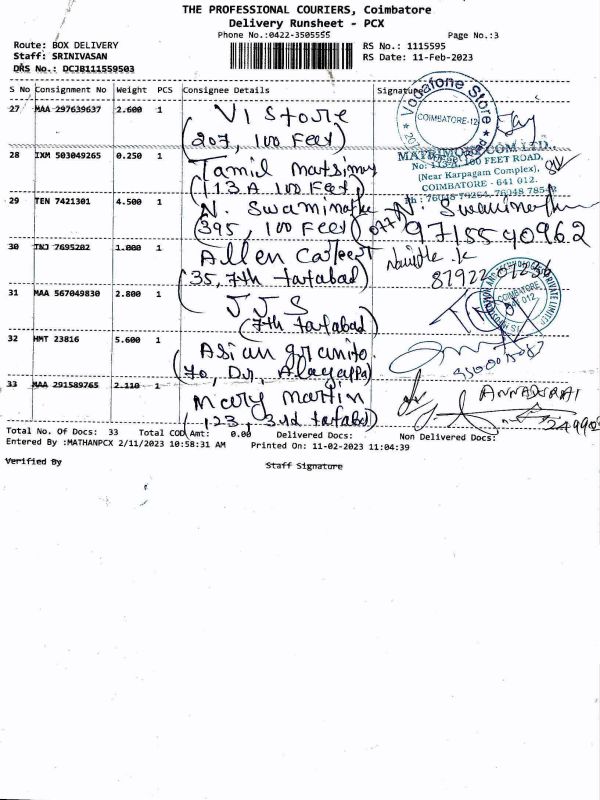 THE PROFESSIONAL COURIERS, Coimbatore
Delivery Runsheet - PCX
Phone No.:0422-3505555 Page No.:3
Route: BOX DELIVERY RS No.: 1115595
Staff: SRINIVASAN RS Date: 11-Feb-2023
DRS No.: DCJB111559503
S No Consignment No Weight PCS Consignee Details Signature
27 MAA 297639637 2.600 1 VI Store
(207, 100 Feet)
Vodafone Store
COIMBATORE-12
28 IXM 503049265 0.250 1 Tamil
(113.A. 100 Feet)
No: 113-A, 100 FEET ROAD,
(Near Karpagam Complex),
COIMBATORE - 641 012.
29 TEN 7421301 4.500 1 N. Swaminathe N Swaminathe
(395, 100 Feet) 9715540962
30 TNJ 7695202 1.000 1 Allen Career
(35, 7th tatabad)
31 MAA 567049830 2.800 1 JJS
(7th tatabad)
COIMBATORE
32 HMT 23816 5.600 1 Asian granito.
(70, Dr, Alagappa)
33 MAA 291589765 2.110 1 Mary Martin ANNADURAI
(123, 3rd tatabad)
Total No. Of Docs: 33 Total COD Amt: 0.00 Delivered Docs: Non Delivered Docs:
Entered By :MATHANPCX 2/11/2023 10:58:31 AM Printed On: 11-02-2023 11:04:39
Verified By Staff Signature